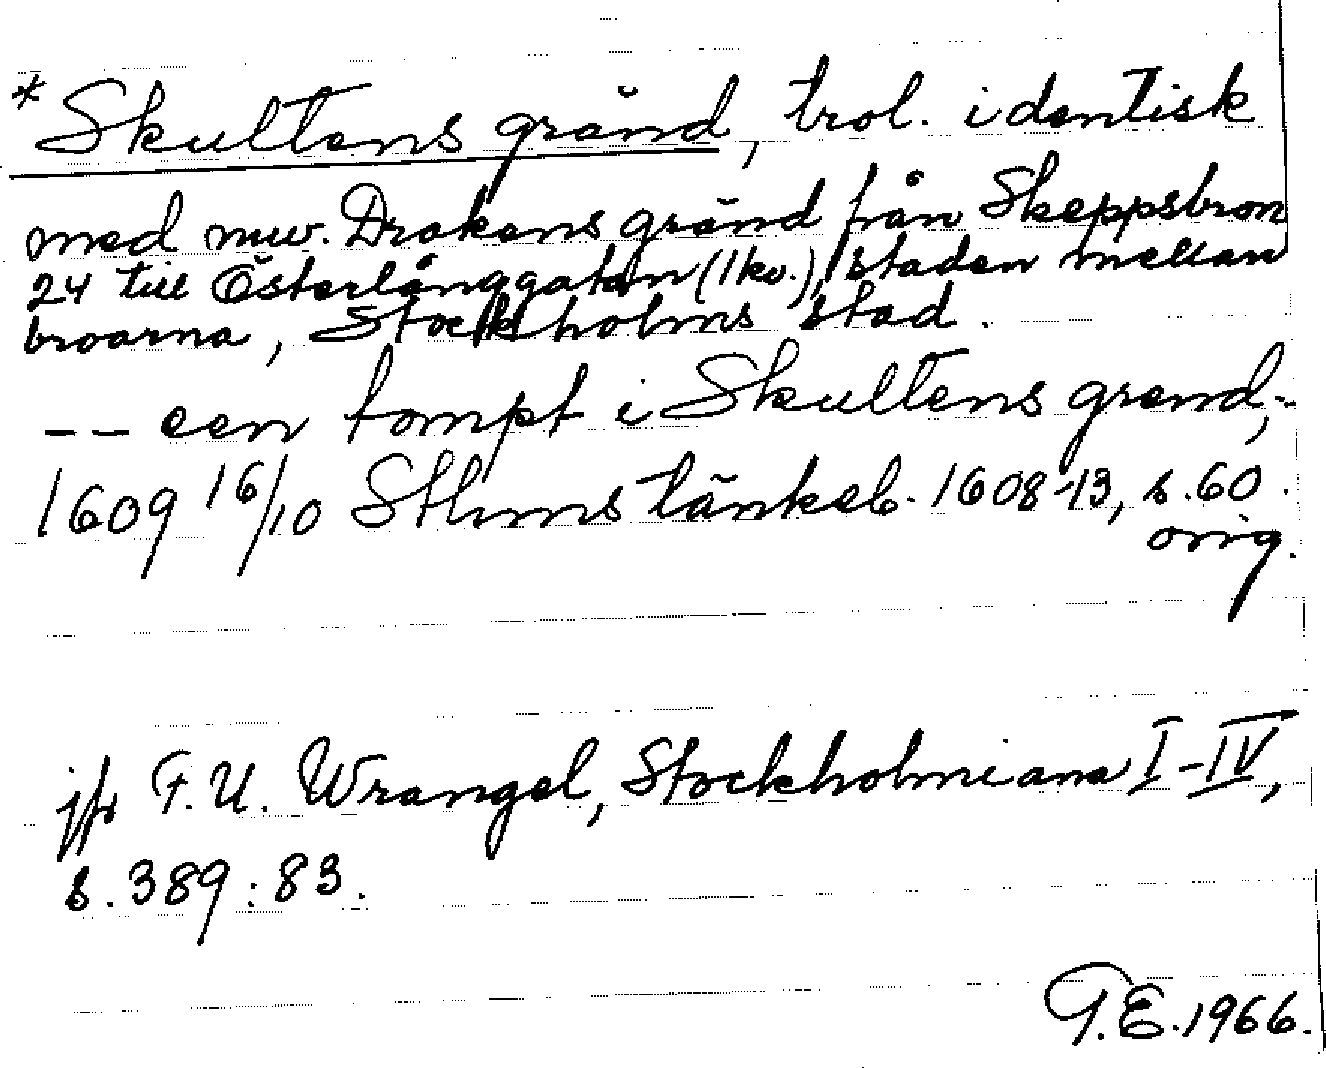 *Skultens gränd, trol. identisk
med nuv. Drakens gränd från Skeppsbron
24 till Österlånggatan (1 kv.), staden mellan
broarna, Stockholms stad.
-- een tompt i Skultens grend, --
1609 16/10 Sthms tänkeb. 1608-13, s. 60.
orig.
jfr F. U. Wrangel, Stockholmiana I-IV,
s. 389: 83.
G.E. 1966.